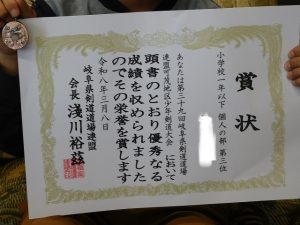 賞状
小学校一年以下 個人の部 第三位
あなたは第三十九回岐阜県剣道道場
連盟可茂地区少年剣道大会において
頭書のとおり優秀なる
成績を収められました
のでその栄誉を賞します
令和八年三月八日
岐阜県剣道道場連盟
会長 浅川裕茲